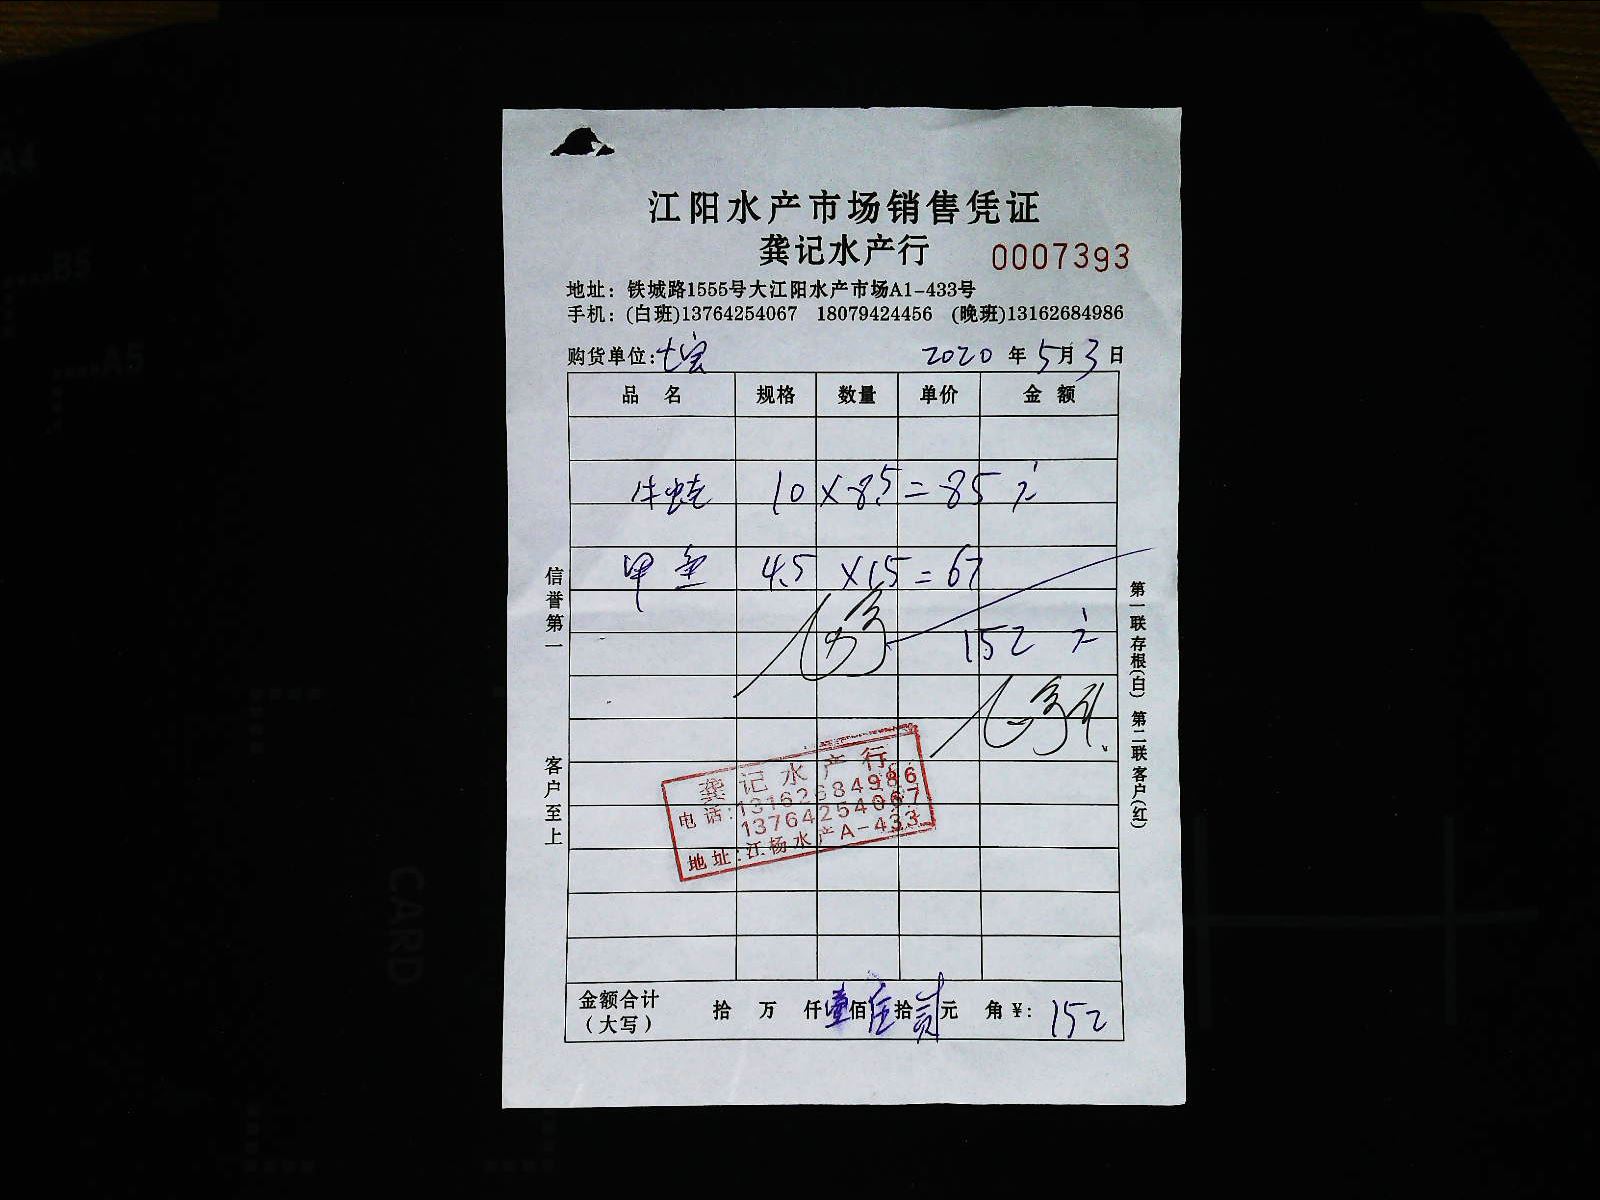 江阳水产市场销售凭证
龚记水产行 0007393
地址：铁城路1555号大江阳水产市场A1-433号
手机：(白班)13764254067 18079424456 (晚班)13162684986
购货单位：七宝 2020 年 5 月 3 日
品名 规格 数量 单价 金额
牛蛙 10 × 8.5 = 85 元
甲鱼 4.5 × 15 = 67
152 元
龚记水产行
电话：13162684986
13764254067
地址：江杨水产A-433
金额合计（大写） 拾 万 仟 壹佰 伍拾 贰元 角 ¥：152
信誉第一 客户至上
第一联存根(白) 第二联客户(红)
A4
B5
A5
CARD